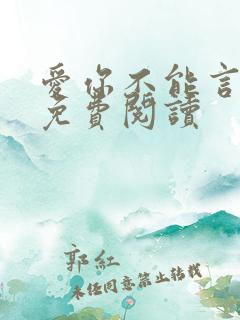 愛你不能言
免費閱讀
郭紅
未经同意禁止转载